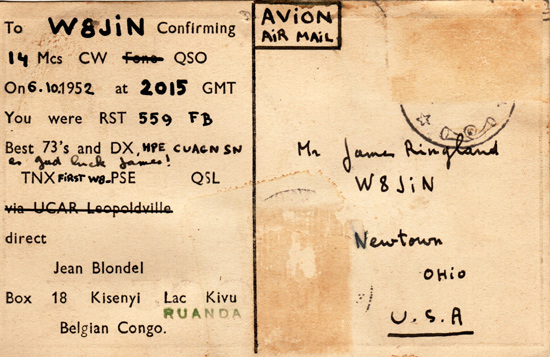 To W8JiN Confirming
14 Mcs CW Fone QSO
On 6.10.1952 at 2015 GMT
You were RST 559 FB
Best 73's and DX, HPE CUAGN SN
es gud luck James!
TNX FiRST W8-PSE QSL
via UCAR Leopoldville
direct
Jean Blondel
Box 18 Kisenyi Lac Kivu
RUANDA
Belgian Congo.
AViON
AiR MAiL
Mr James Ringland
W8JiN
Newtown
OHiO
U.S.A